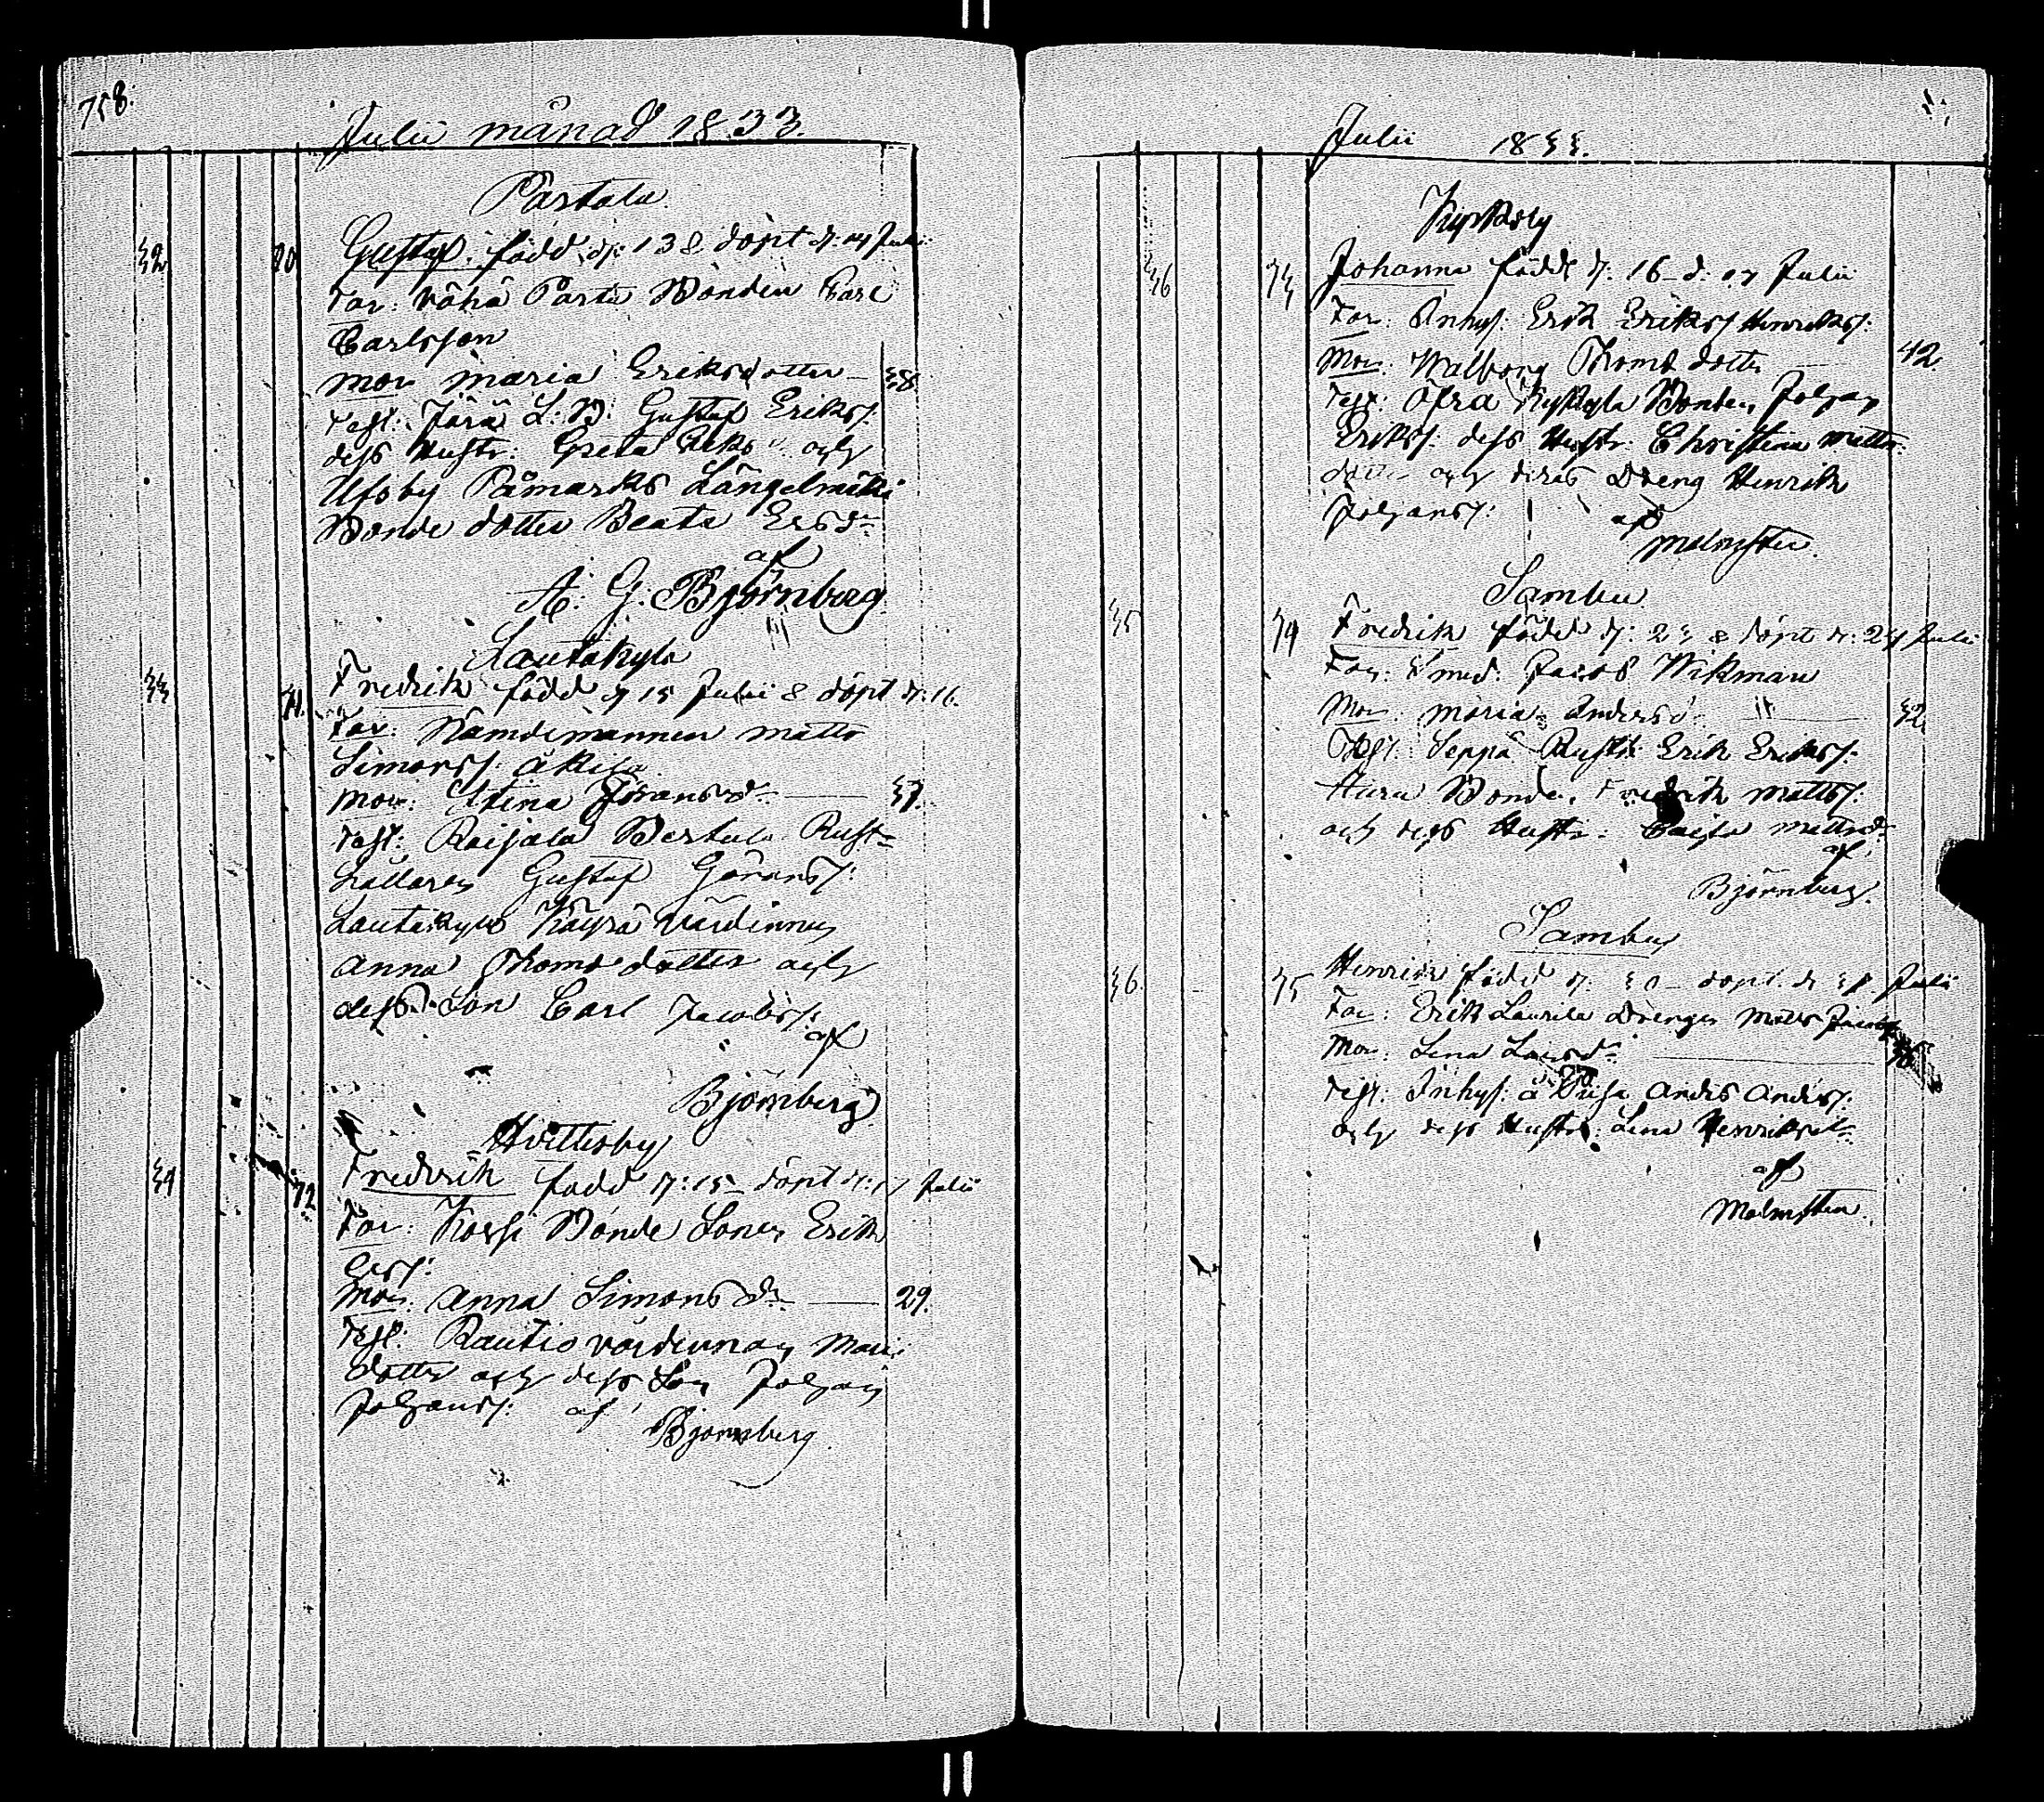 758.
Julii månad 1833.
Partala
32 70 Gustaf. född d: 13 & döpt d: 14 Julii
Far: Vähä Parta Bonden Carl
Carlsson
Mor Maria Eriksdotter — 38
Test: Järä L: B: Gustaf Erikss:
dess Hustr: Greta och
Påmarks Längelmäki
Bonde dotter Beata Ersdr
af
A: G: Björnberg
Lautakylä
33 71. Fredrik född d 15 Julii & döpt d: 16.
Far: Nämdemannen Matts
Simonss:
Mor: Stina Göransdr — 37.
Test: Raijala Bertula Rust=
hållaren Gustaf Göranss:
Lautakylä Käyrä värdinnan
Anna Thomædotter och
dess Son Carl Jacobss:
af
Björnberg
Hvittisby
34 72 Fredrik född d: 15 – döpt d: 17 Julii
Far: Bonde Sonen Erik
Erss:
Mor: Anna Simonsdr — 29.
Test: Rautio värdinnan
dotter och dess Son Johan
Johanss: af
Björnberg
Julii 1833.
36 73 Johanna född d: 16 – d: 17 Julii
Far: Inhys: Erik Erikss Henrikss:
Mor: Walborg Thomædotter — 42.
Test: Öfra Bonden Johan
Erikss: dess Hustr: Christina Matts
dotter och deras Dreng Henrik
Johanss:
af
Malmsten.
Sambu
35 74 Fredrik född d: 23 & döpt d: 24 Julii
Far: Smed: Jacob Wikman
Mor: Maria Andersd: — 32
Test: Seppä Rusth: Erik Erikss:
Bonden Fredrik Mattss:
och dess Hustr: Caisa Mattsdr
af
Björnberg.
Sambu
36. 75 Henrik född d: 30 – döpt d 31 Julii
Far: Erik Laurila Drengen Matts
Mor: Lena —
Test: Inhys: å Anders Anderss:
och dess Hustr: Lena Henriksdr
af
Malmsten.